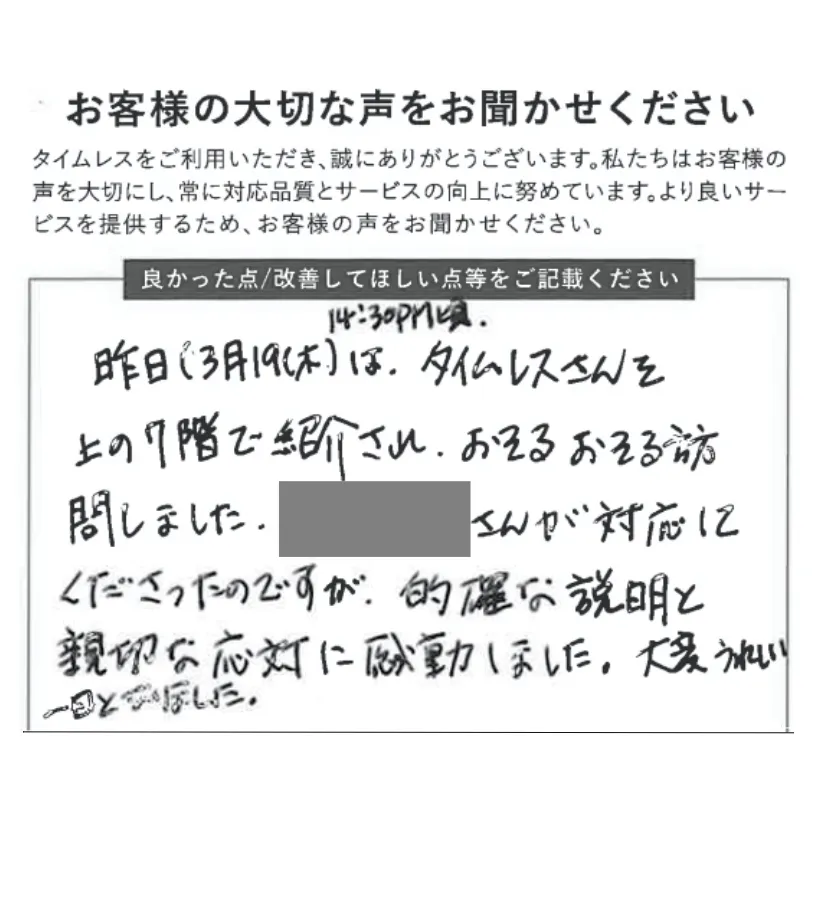 お客様の大切な声をお聞かせください
タイムレスをご利用いただき、誠にありがとうございます。私たちはお客様の
声を大切にし、常に対応品質とサービスの向上に努めています。より良いサー
ビスを提供するため、お客様の声をお聞かせください。
良かった点/改善してほしい点等をご記載ください
14:30PM頃.
昨日(3月19(木)は、タイムレスさんを
上の7階で紹介され、おそるおそる訪
問しました.
さんが対応に
くださったのですが、的確な説明と
親切な応対に感動しました。大変うれしい
一日となりました。